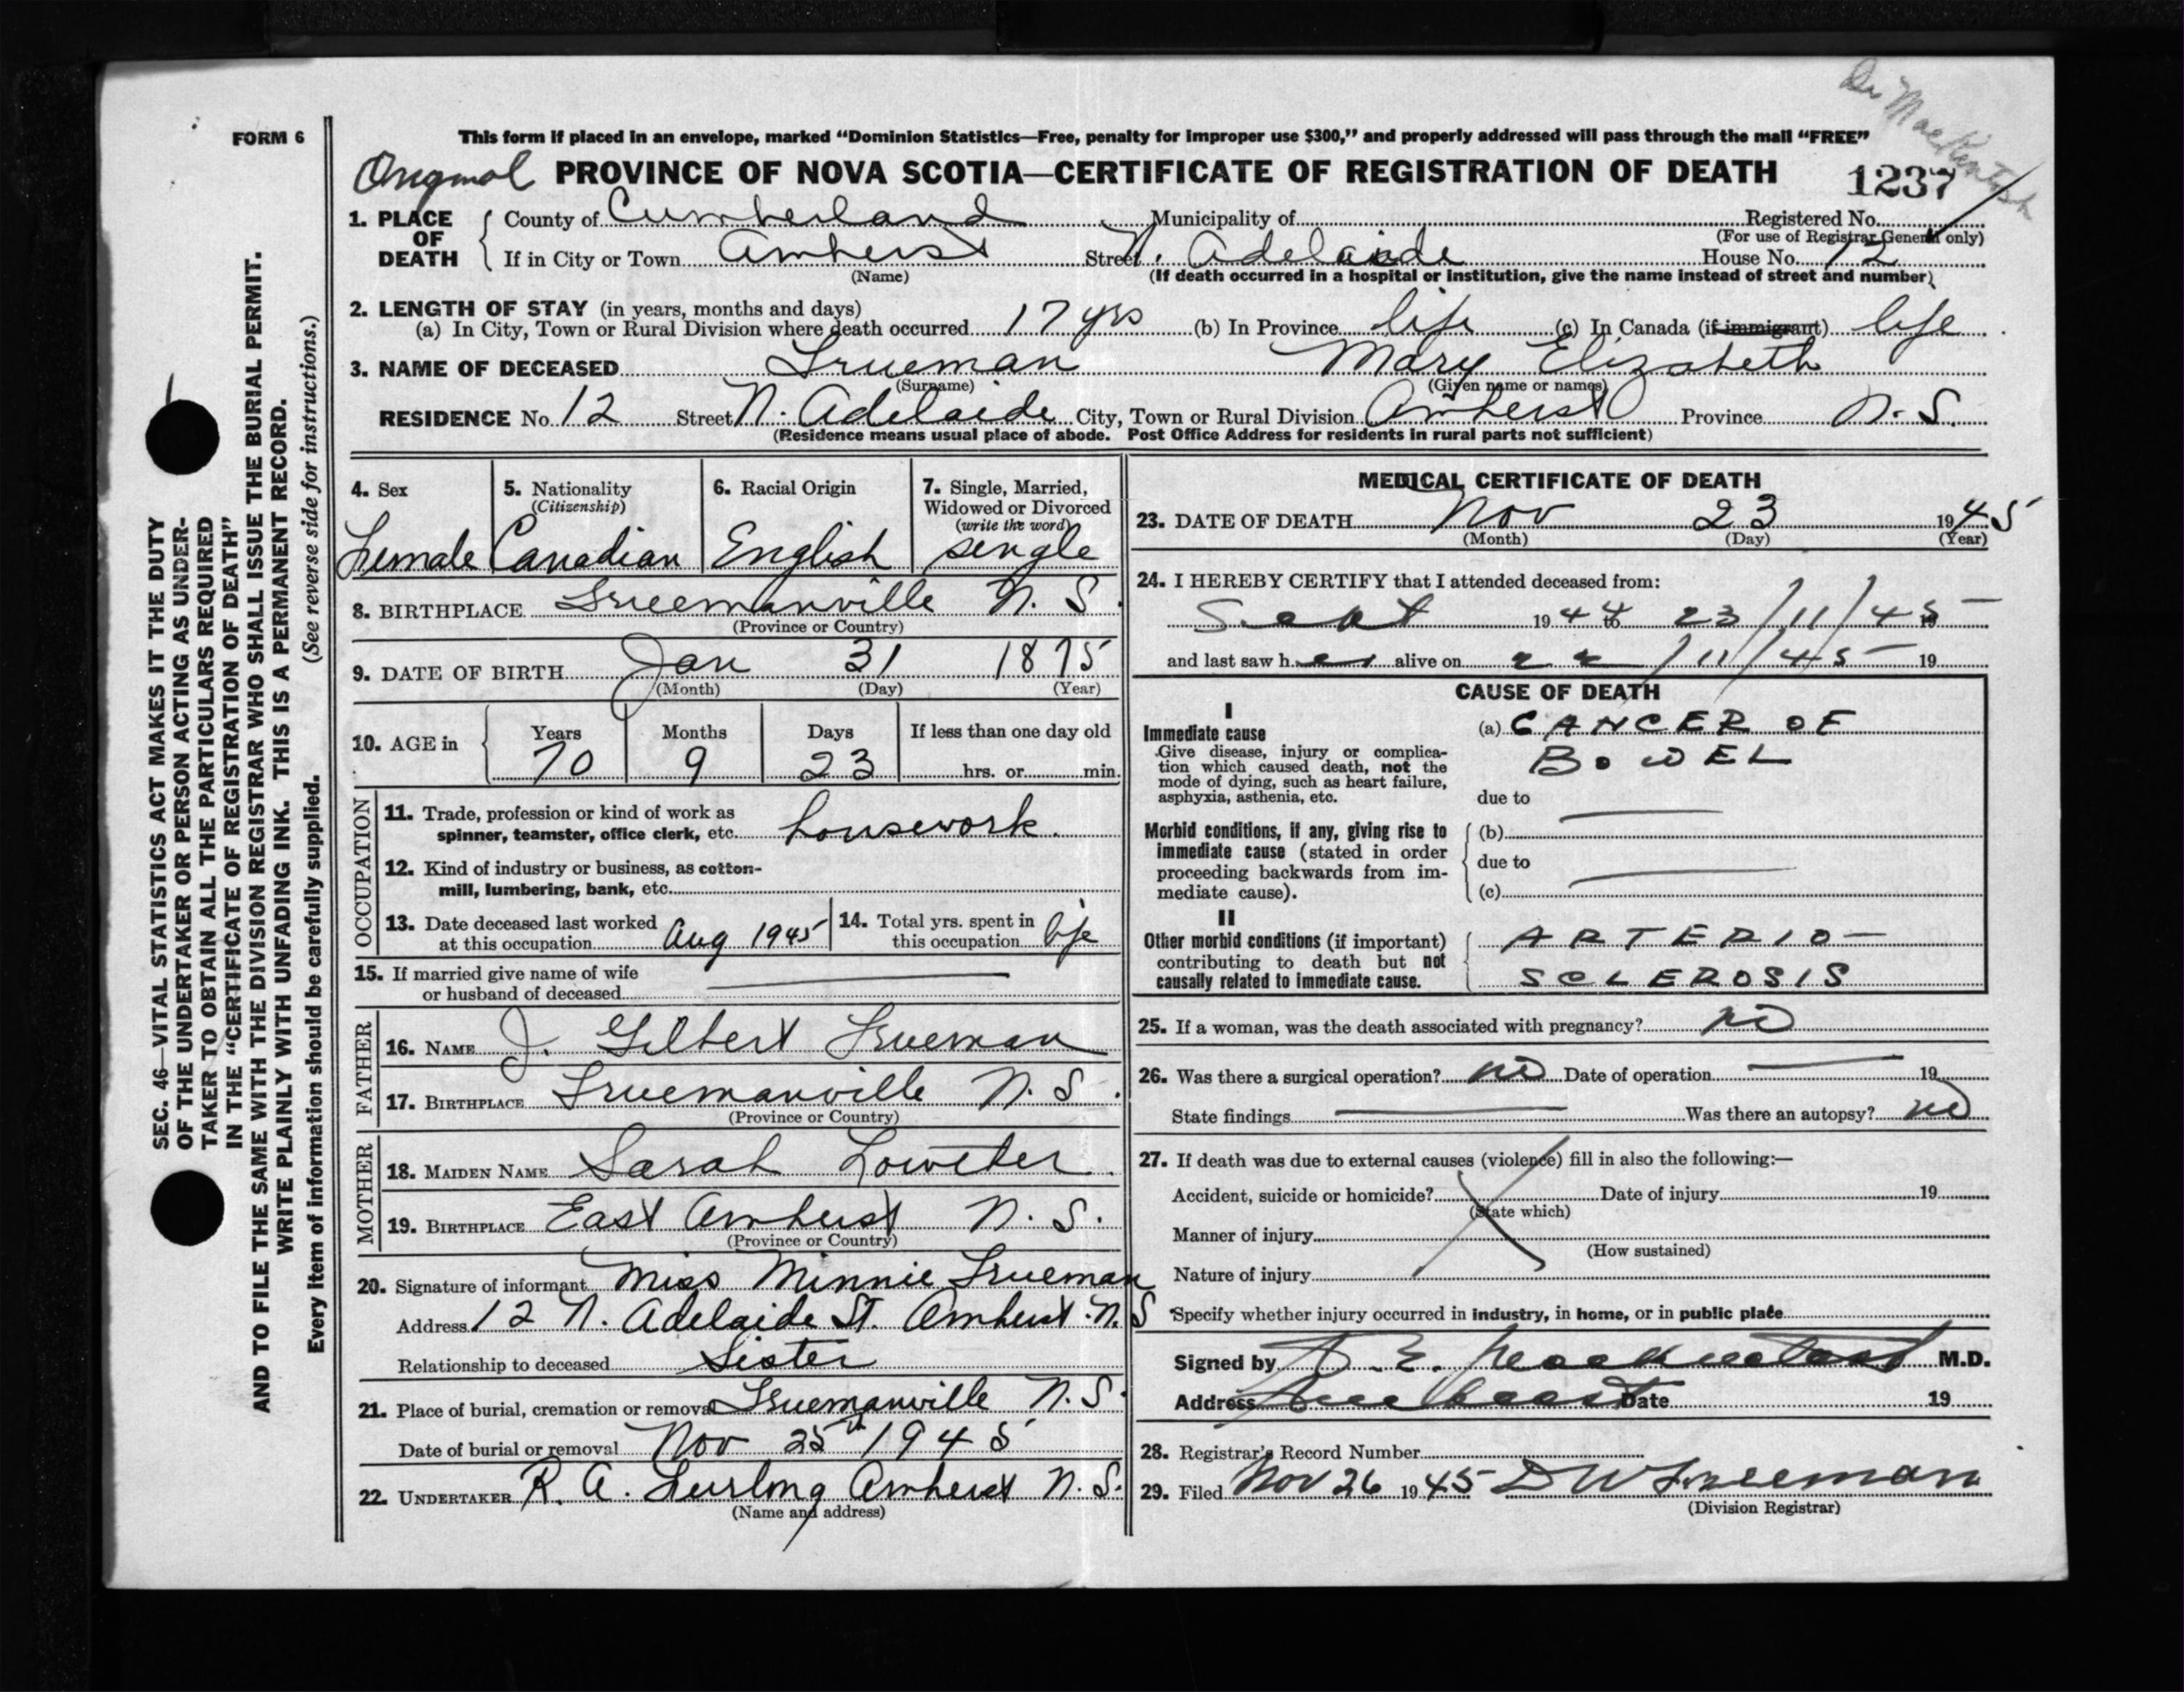 Dr MacKintosh
FORM 6
This form if placed in an envelope, marked "Dominion Statistics—Free, penalty for improper use $300," and properly addressed will pass through the mail "FREE"
Original PROVINCE OF NOVA SCOTIA—CERTIFICATE OF REGISTRATION OF DEATH 1237
1. PLACE OF DEATH County of Cumberland Municipality of Registered No.
(For use of Registrar General only)
If in City or Town Amherst Street N. Adelaide House No. 12
(Name) (If death occurred in a hospital or institution, give the name instead of street and number)
2. LENGTH OF STAY (in years, months and days)
(a) In City, Town or Rural Division where death occurred 17 yrs (b) In Province life (c) In Canada (if immigrant) life
3. NAME OF DECEASED Trueman Mary Elizabeth
(Surname) (Given name or names)
RESIDENCE No. 12 Street N. Adelaide City, Town or Rural Division Amherst Province N. S.
(Residence means usual place of abode. Post Office Address for residents in rural parts not sufficient)
4. Sex 5. Nationality (Citizenship) 6. Racial Origin 7. Single, Married, Widowed or Divorced (write the word)
Female Canadian English single
8. BIRTHPLACE Trueemanville N. S.
(Province or Country)
9. DATE OF BIRTH Jan 31 1875
(Month) (Day) (Year)
10. AGE in Years Months Days If less than one day old
70 9 23 hrs. or min.
OCCUPATION
11. Trade, profession or kind of work as
spinner, teamster, office clerk, etc. housework.
12. Kind of industry or business, as cotton-
mill, lumbering, bank, etc.
13. Date deceased last worked
at this occupation Aug 1945
14. Total yrs. spent in
this occupation life
15. If married give name of wife
or husband of deceased
FATHER
16. NAME J. Gilbert Trueman
17. BIRTHPLACE Truemanville N. S.
(Province or Country)
MOTHER
18. MAIDEN NAME Sarah Lowther
19. BIRTHPLACE East Amherst N. S.
(Province or Country)
20. Signature of informant Miss Minnie Trueman
Address 12 N. Adelaide St. Amherst N. S
Relationship to deceased Sister
21. Place of burial, cremation or removal Truemanville N. S.
Date of burial or removal Nov 25th 1945
22. UNDERTAKER R. A. Furlong Amherst N. S.
(Name and address)
MEDICAL CERTIFICATE OF DEATH
23. DATE OF DEATH Nov 23 1945
(Month) (Day) (Year)
24. I HEREBY CERTIFY that I attended deceased from:
Sept 1944 to 23/11/45 19
and last saw her alive on 22/11/45 19
CAUSE OF DEATH
I
Immediate cause
Give disease, injury or complica-
tion which caused death, not the
mode of dying, such as heart failure,
asphyxia, asthenia, etc.
(a) CANCER OF
BOWEL
due to
Morbid conditions, if any, giving rise to
immediate cause (stated in order
proceeding backwards from im-
mediate cause).
(b)
due to
(c)
II
Other morbid conditions (if important)
contributing to death but not
causally related to immediate cause.
ARTERIO-
SCLEROSIS
25. If a woman, was the death associated with pregnancy? no
26. Was there a surgical operation? no Date of operation 19
State findings Was there an autopsy? no
27. If death was due to external causes (violence) fill in also the following:—
Accident, suicide or homicide? Date of injury 19
(State which)
Manner of injury
(How sustained)
Nature of injury
Specify whether injury occurred in industry, in home, or in public place
Signed by D. E. Mackintosh M.D.
Address Amherst Date 19
28. Registrar's Record Number
29. Filed Nov 26 1945 D W Freeman
(Division Registrar)
SEC. 46—VITAL STATISTICS ACT MAKES IT THE DUTY
OF THE UNDERTAKER OR PERSON ACTING AS UNDER-
TAKER TO OBTAIN ALL THE PARTICULARS REQUIRED
IN THE "CERTIFICATE OF REGISTRATION OF DEATH"
AND TO FILE THE SAME WITH THE DIVISION REGISTRAR WHO SHALL ISSUE THE BURIAL PERMIT.
WRITE PLAINLY WITH UNFADING INK. THIS IS A PERMANENT RECORD.
Every item of information should be carefully supplied. (See reverse side for instructions.)